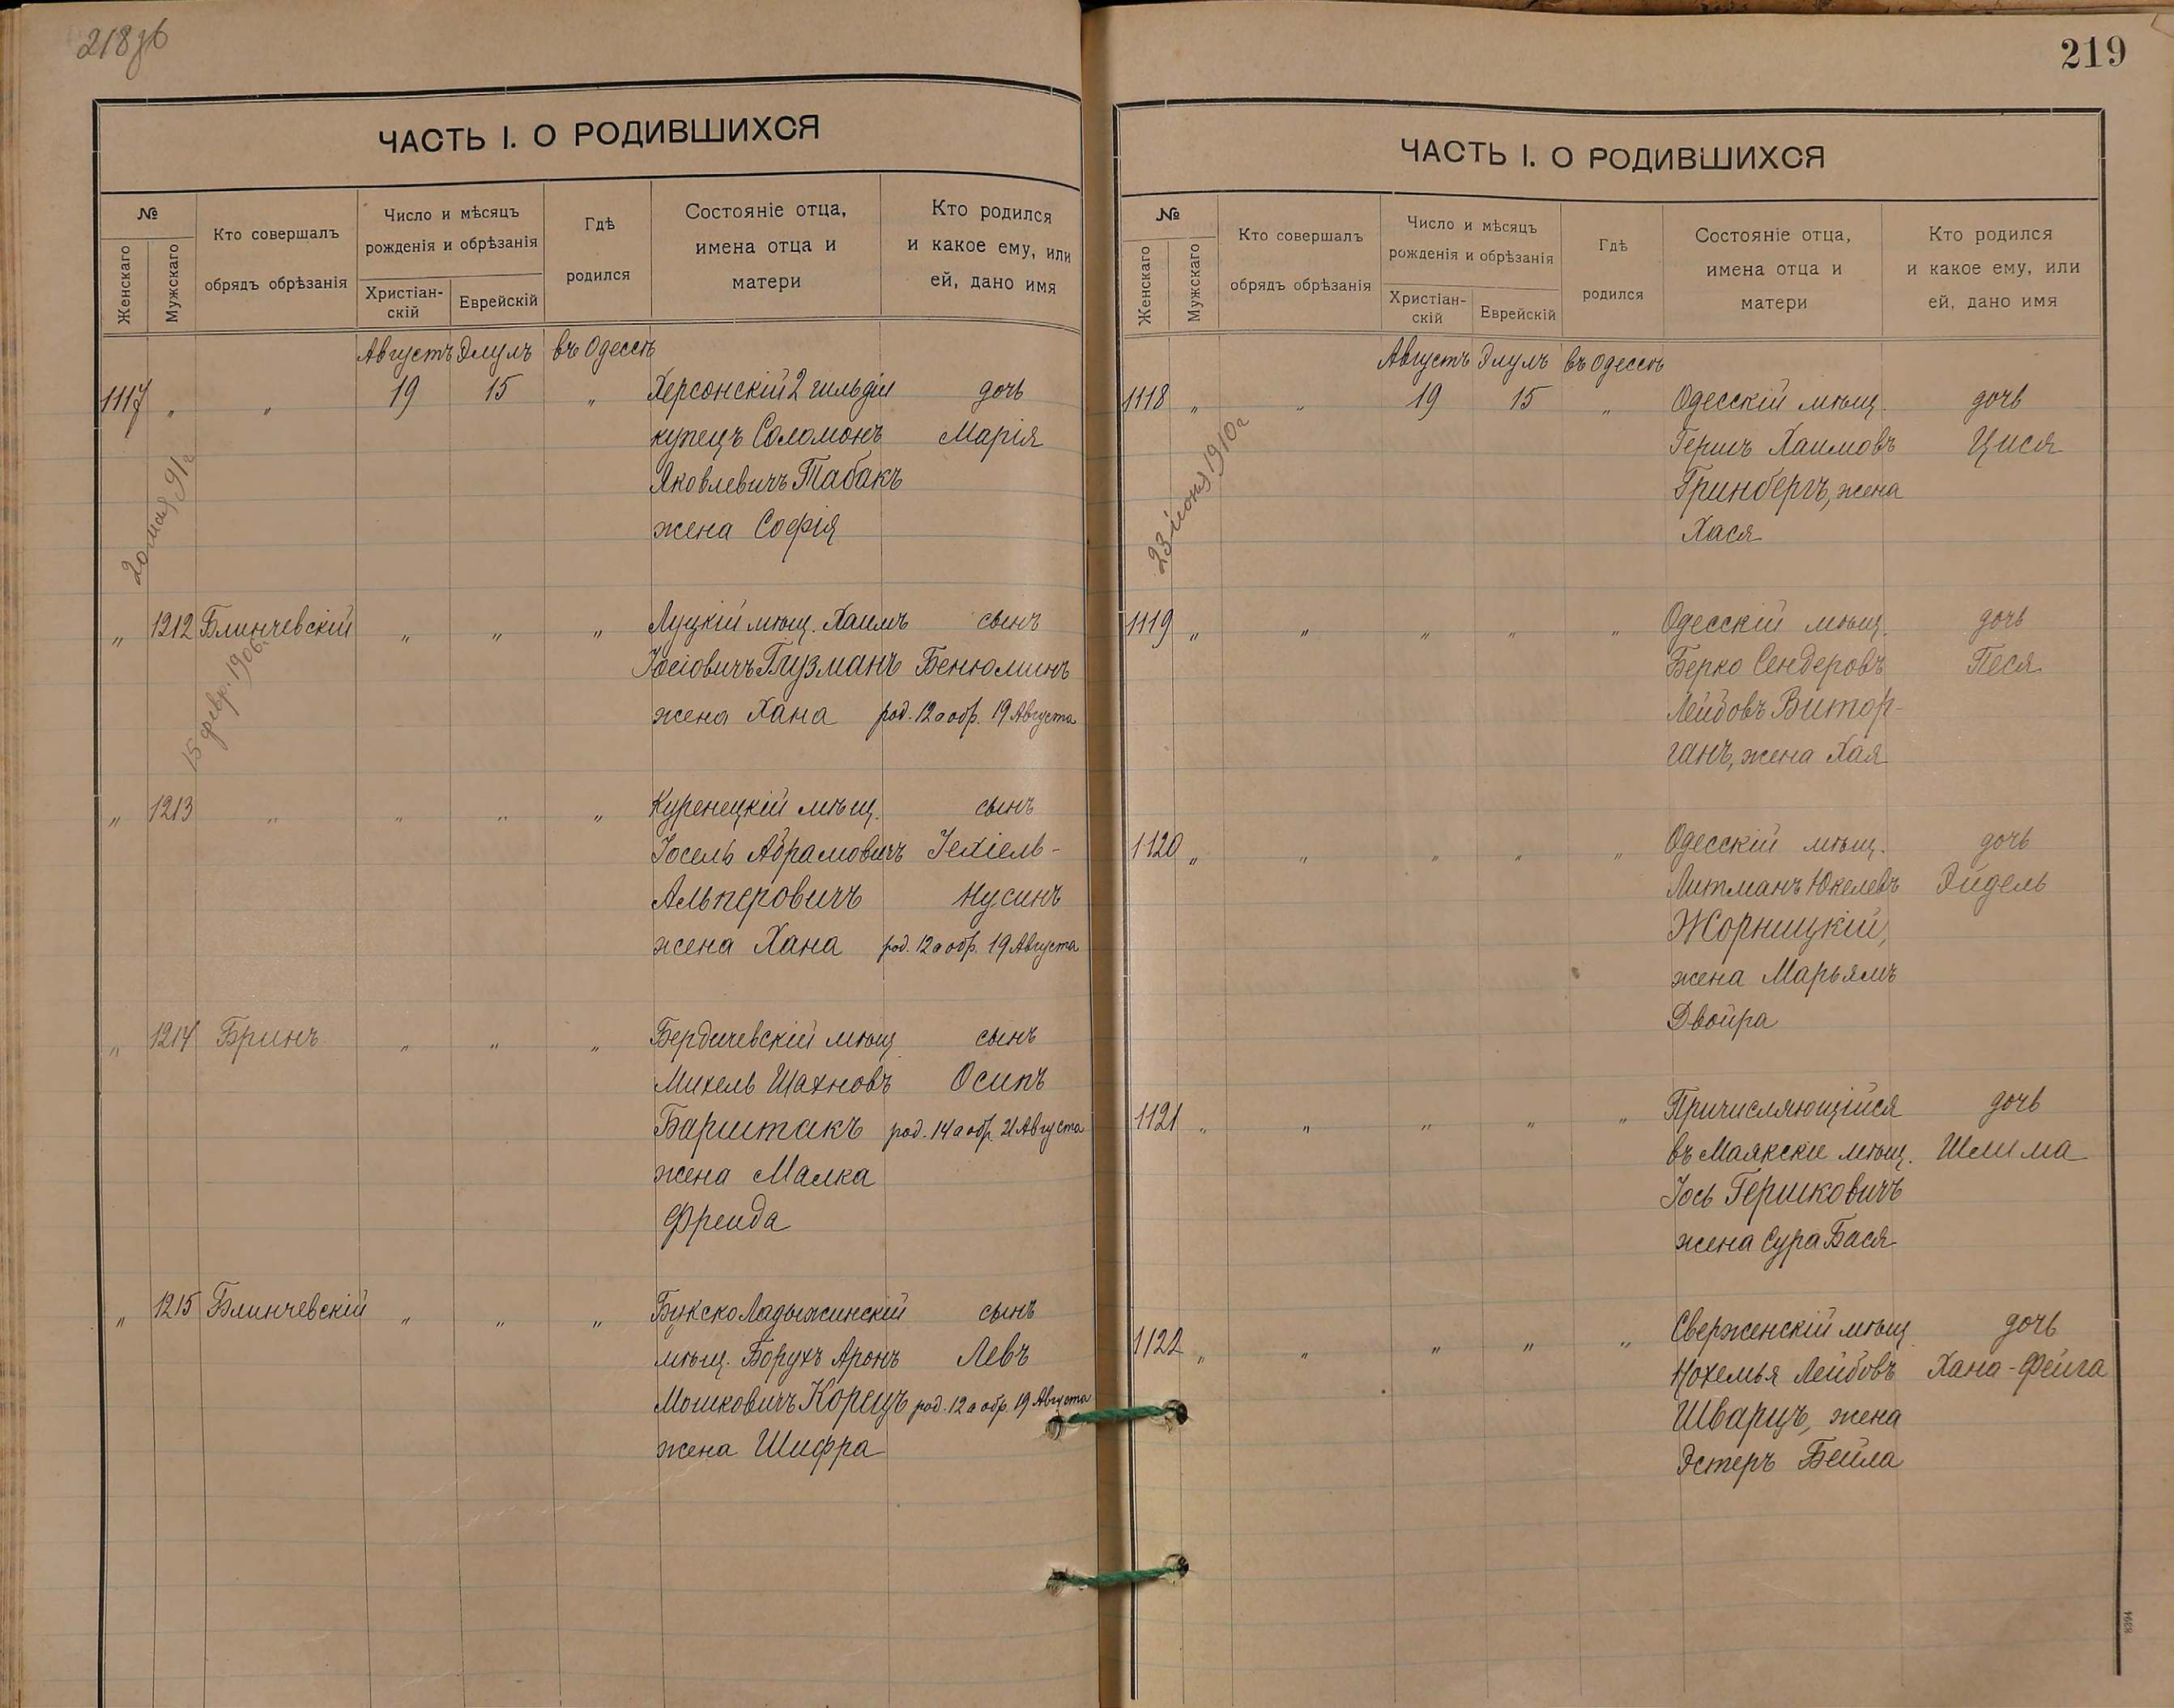 218 зв
ЧАСТЬ I. О РОДИВШИХСЯ
№
Женскаго
Мужскаго
Кто совершалъ
обрядъ обрѣзанія
Число и мѣсяцъ
рожденія и обрѣзанія
Христіан-
скій
Еврейскій
Гдѣ
родился
Состояніе отца,
имена отца и
матери
Кто родился
и какое ему, или
ей, дано имя
Августъ Элулъ въ Одессѣ
1117 " " 19 15 " Херсонскій 2 гильдіи дочь
купецъ Соломонъ Марія
Яковлевичъ Табакъ
жена Софія
20 мая 91 г
" 1212 Блинчевскій " " " Луцкій мѣщ. Хаимъ сынъ
Іосіовичъ Глузманъ Бенюминъ
жена Хана род. 12 а обр. 19 Августа
15 февр. 1906
" 1213 " " " " Куренецкій мѣщ. сынъ
Іосель Абрамовичъ Іехіель-
Альперовичъ Нусинъ
жена Хана род. 12 а обр. 19 Августа
" 1214 Бринъ " " " Бердичевскій мѣщ сынъ
Михель Шахновъ Осипъ
Барштакъ род. 14 а обр. 21 Августа
жена Малка
Фрейда
" 1215 Блинчевскій " " " Букско Ладыжинскій сынъ
мѣщ. Борухъ Аронъ Левъ
Мошковичъ Корецъ род. 12 а обр. 19 Августа
жена Шифра
219
ЧАСТЬ I. О РОДИВШИХСЯ
№
Женскаго
Мужскаго
Кто совершалъ
обрядъ обрѣзанія
Число и мѣсяцъ
рожденія и обрѣзанія
Христіан-
скій
Еврейскій
Гдѣ
родился
Состояніе отца,
имена отца и
матери
Кто родился
и какое ему, или
ей, дано имя
Августъ Элулъ въ Одессѣ
1118 " " 19 15 " Одесскій мѣщ. дочь
Гершъ Хаимовъ Цися
Гринбергъ, жена
Хася
23 іюня 1910 г
1119 " " " " " Одесскій мѣщ. дочь
Берко Сендеровъ Песя
Лейбовъ Витор-
ганъ, жена Хая
1120 " " " " " Одесскій мѣщ. дочь
Литманъ Юкелевъ Эйдель
Жорницкій,
жена Марьямъ
Двойра
1121 " " " " " Причисляющійся дочь
въ Маякскіе мѣщ. Шлима
Іось Гершковичъ
жена Сура Бася
1122 " " " " " Сверженскій мѣщ дочь
Нохемья Лейбовъ Хана-Фейга
Шварцъ, жена
Эстеръ Бейла
8394